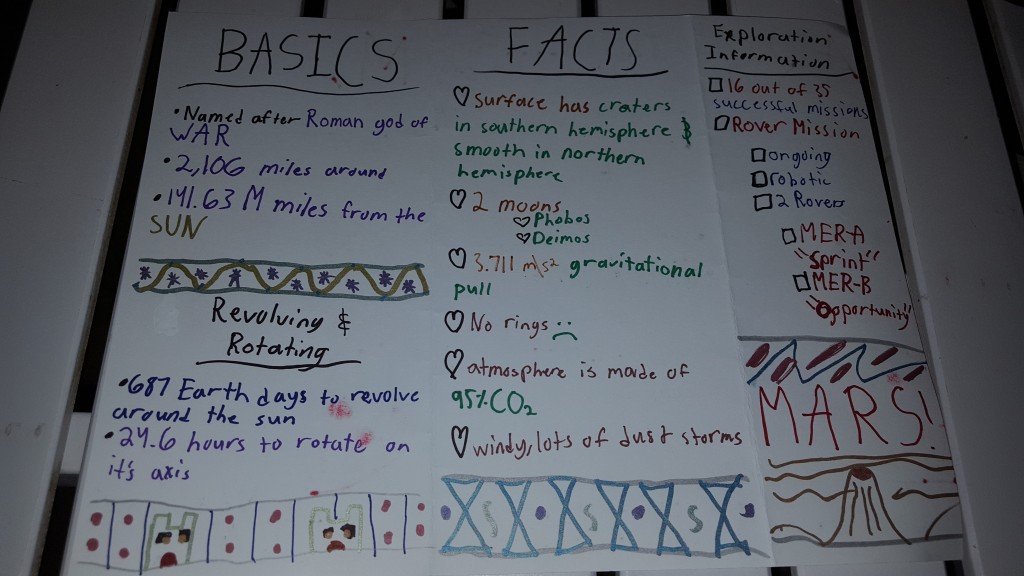 BASICS
•Named after Roman god of
WAR
•2,106 miles around
•141.63 M miles from the
SUN
Revolving &
Rotating
•687 Earth days to revolve
around the sun
•24.6 hours to rotate on
it's axis
FACTS
♡ Surface has craters
in southern hemisphere &
smooth in northern
hemisphere
♡ 2 moons
♡ Phobos
♡ Deimos
♡ 3.711 m/s² gravitational
pull
♡ No rings :(
♡ atmosphere is made of
95% CO₂
♡ windy, lots of dust storms
Exploration
Information
□ 16 out of 35
successful missions
□ Rover Mission
□ ongoing
□ robotic
□ 2 Rovers
□ MER-A
"sprint"
□ MER-B
"Opportunity"
MARS!